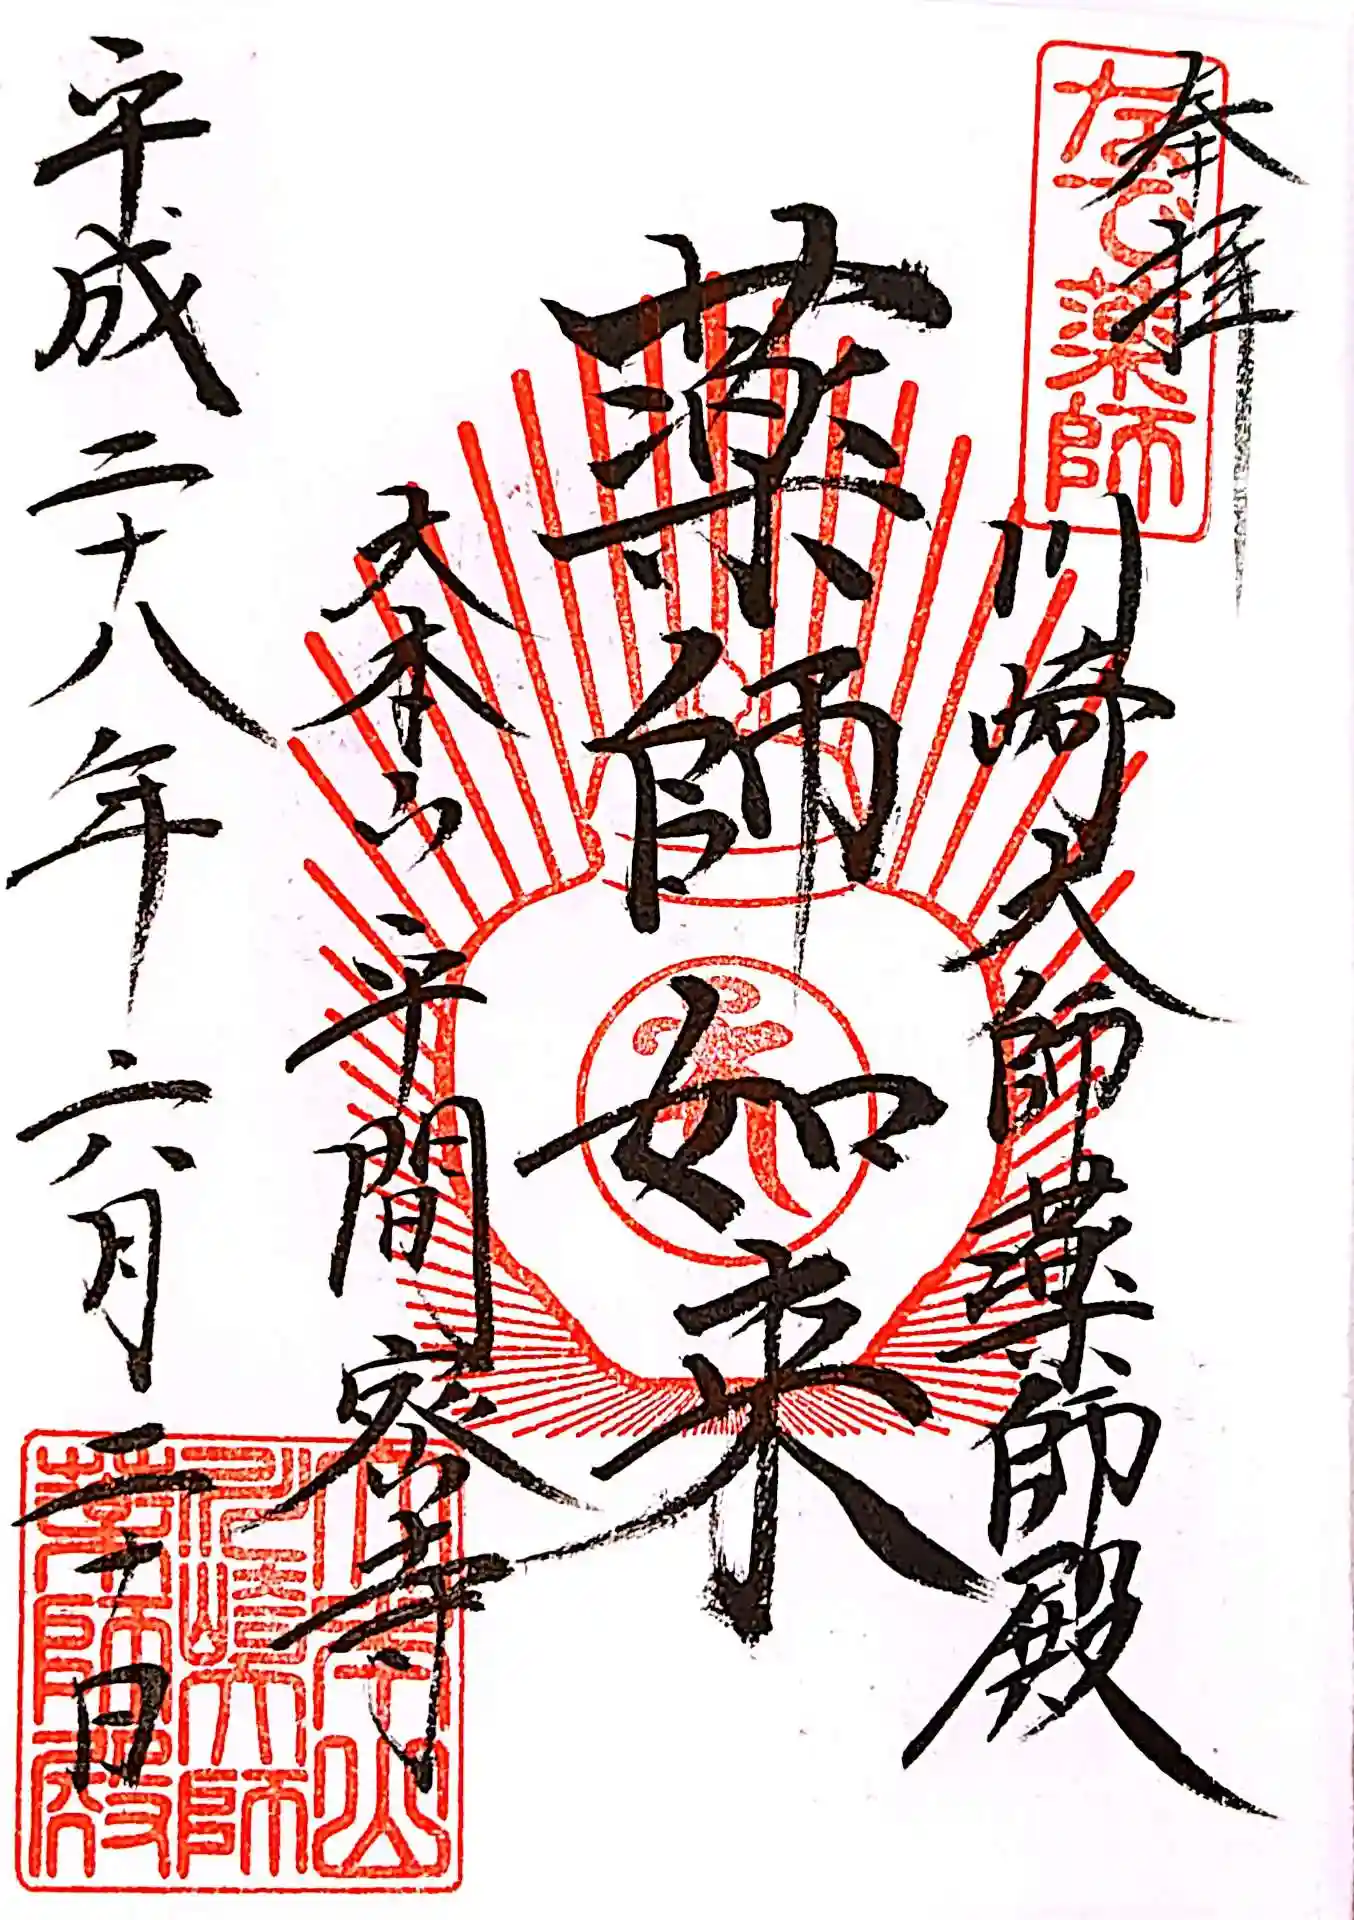 奉拝
なで薬師
川崎大師薬師殿
薬師如来
大本山平間寺
平成二十八年六月二十日
大本山
川崎大師
薬師殿